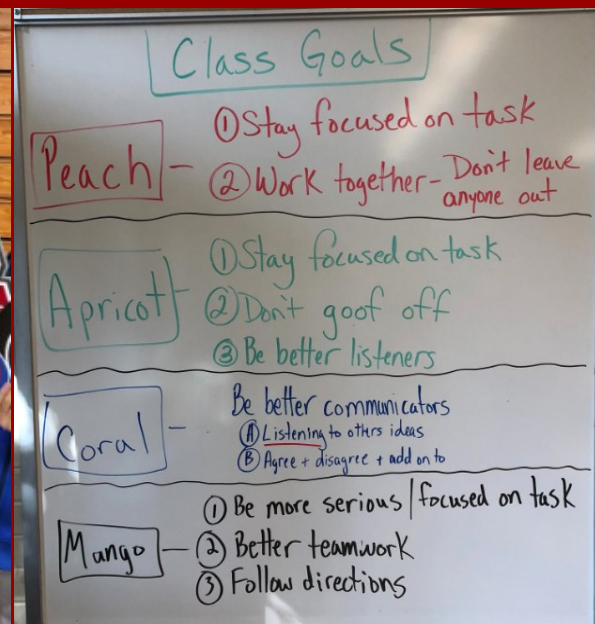 Class Goals
Peach - ① Stay focused on task
② Work together - Don't leave
anyone out
Apricot - ① Stay focused on task
② Don't goof off
③ Be better listeners
Coral - Be better communicators
Ⓐ Listening to othrs ideas
Ⓑ Agree + disagree + add on to
Mango - ① Be more serious / focused on task
② Better teamwork
③ Follow directions